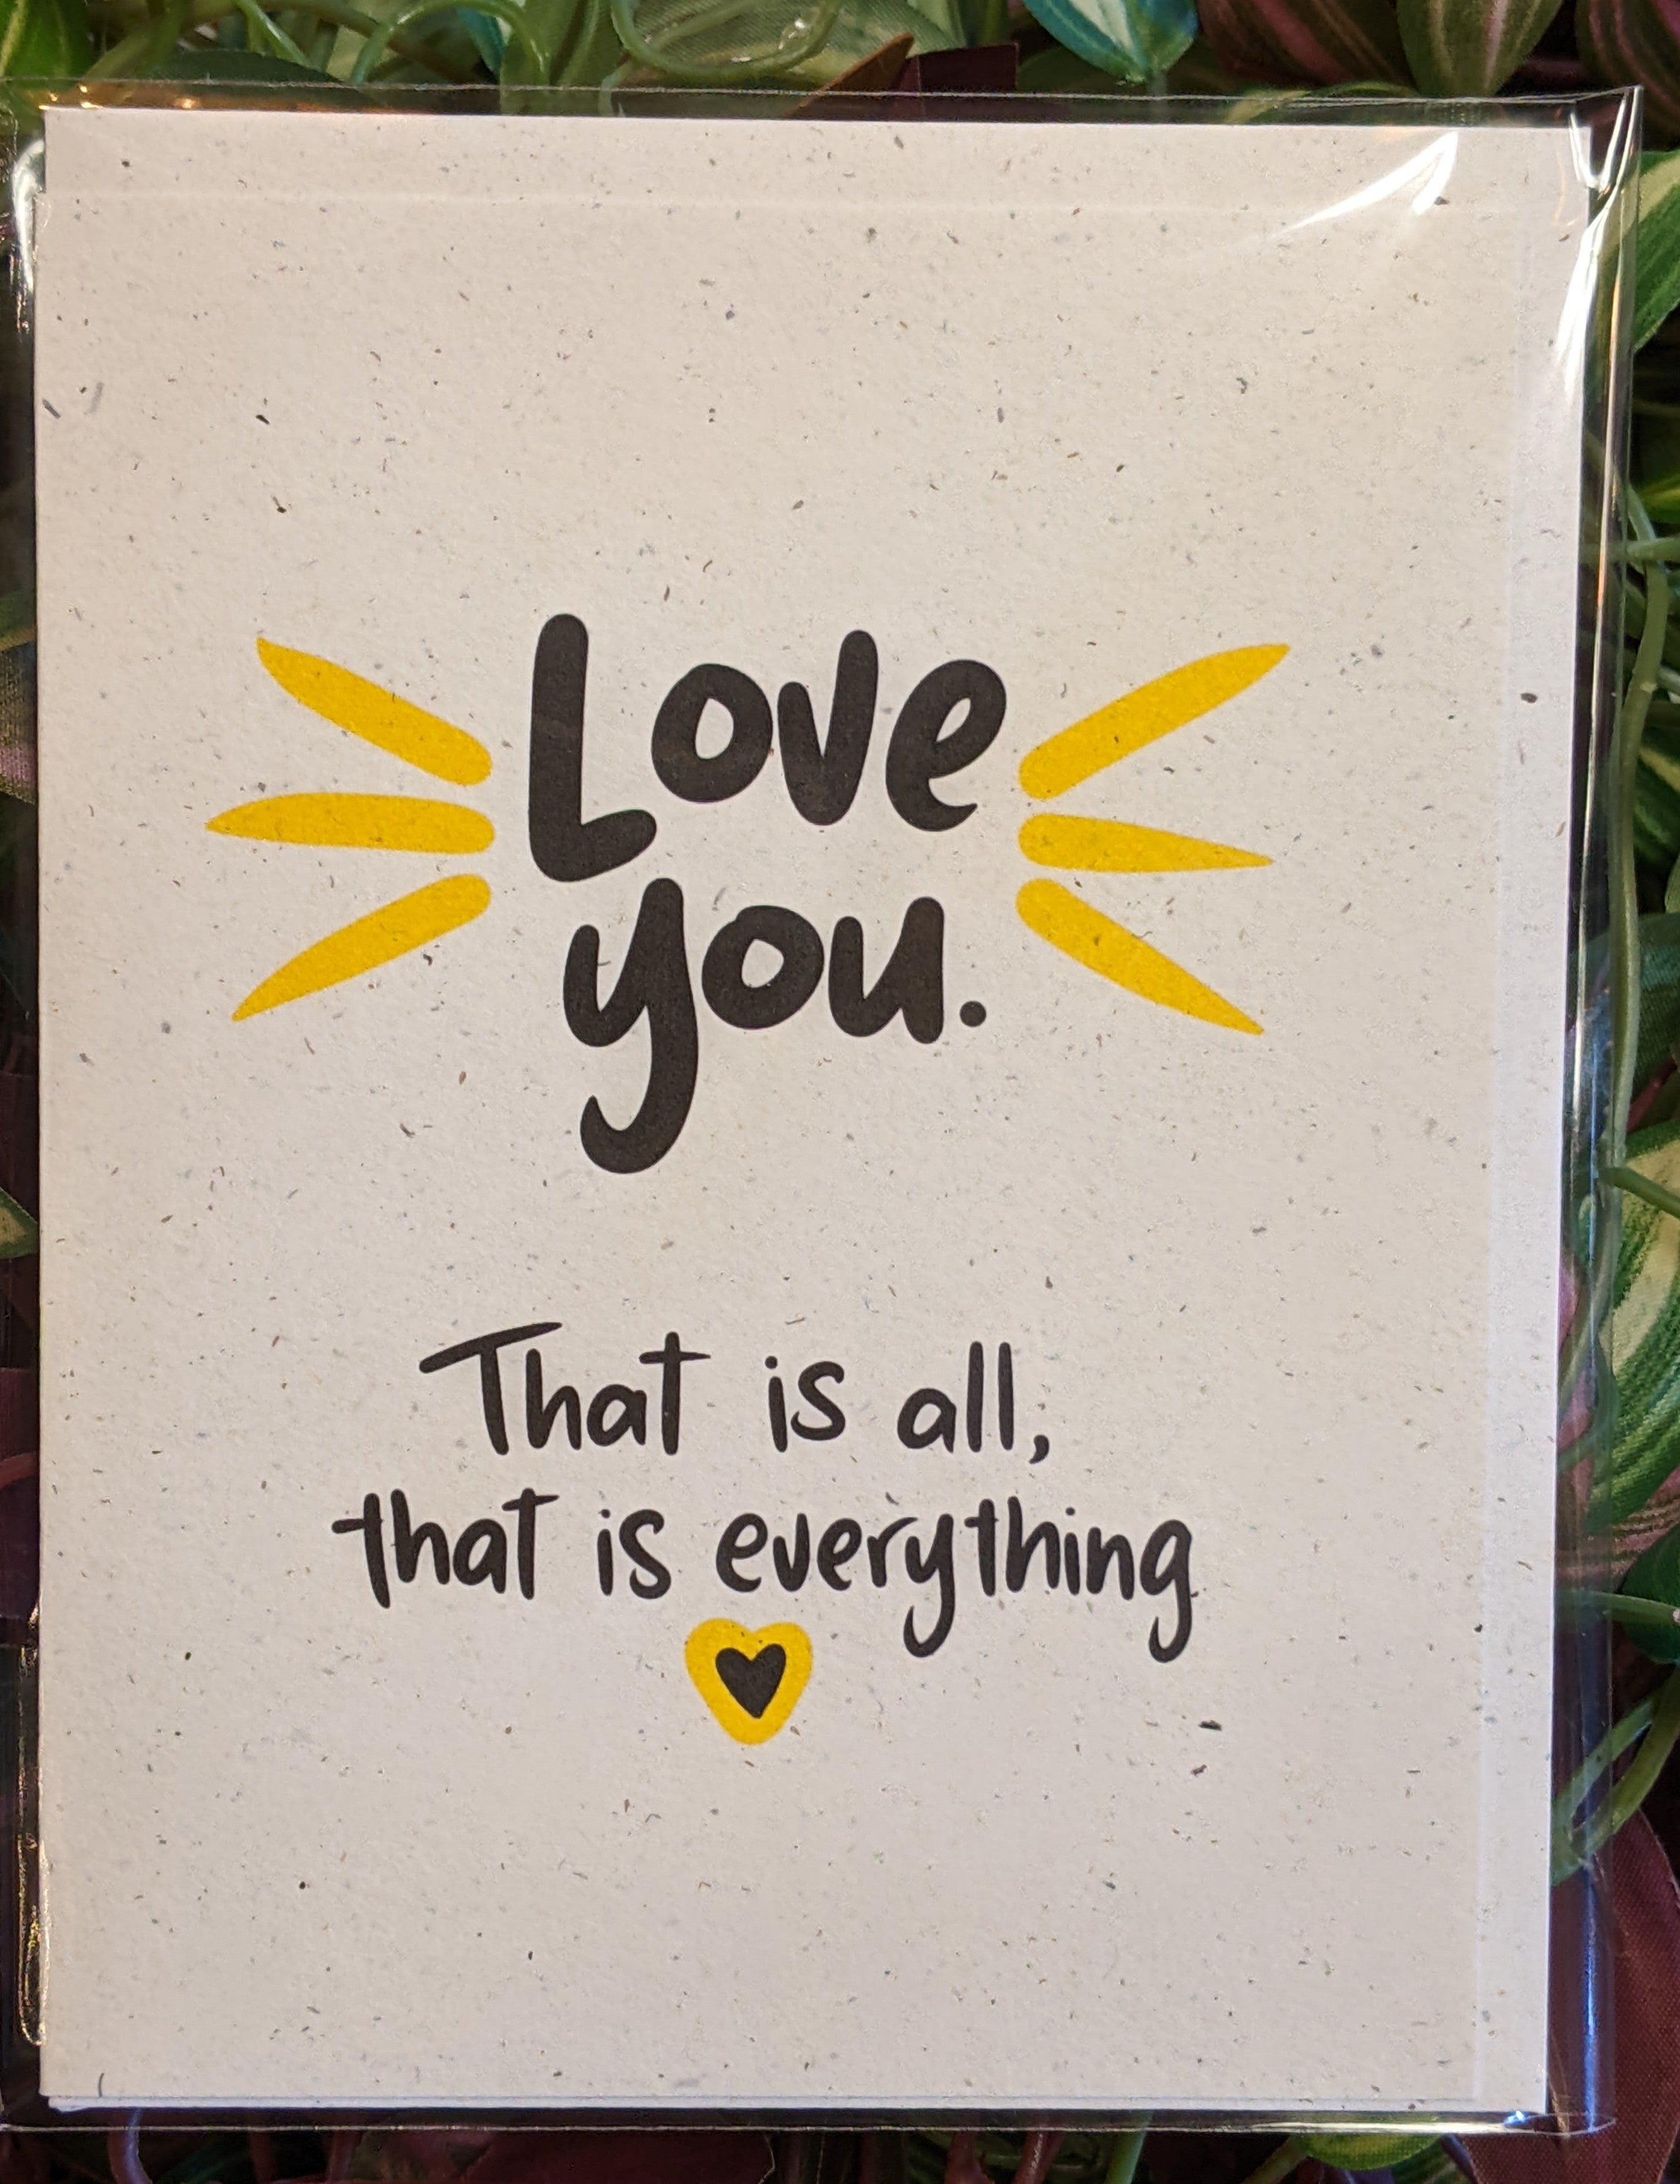 Love
you.
That is all,
that is everything